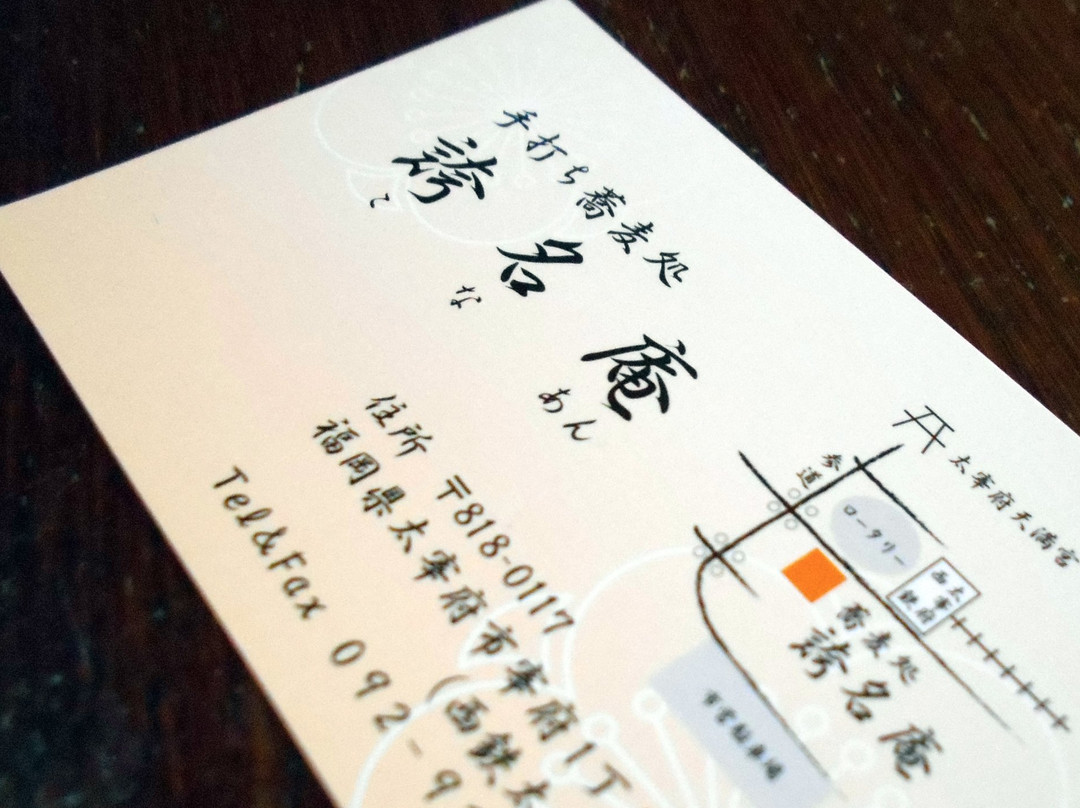 手打ち蕎麦処
誇名庵
こ な あん
住所 〒818-0117
福岡県太宰府市宰府1丁
(西鉄太
Tel&Fax 092-9
太宰府天満宮
参道
ロータリー
西鉄
太宰府
蕎麦処
誇名庵
市営駐車場